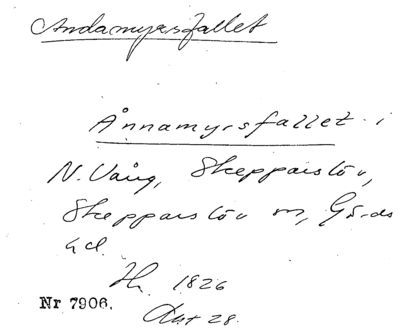 Andamyrsfallet
Ånnamyrsfallet i
N. Vång, Skepparslöv,
Skepparslöv sn, Gärds
hd.
1826
Nr 7906. Akt 28.